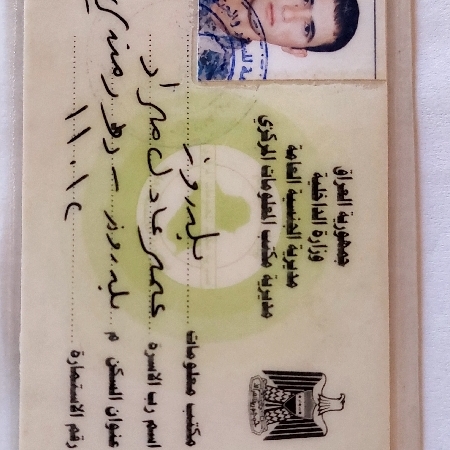 جمهورية العراق
وزارة الداخلية
مديرية الجنسية العامة
مديرية مكتب المعلومات المركزي
مكتب معلومات بلدروز
اسم رب الاسرة عمر عادل مراد
عنوان السكن م بلدروز
رقم الاستمارة